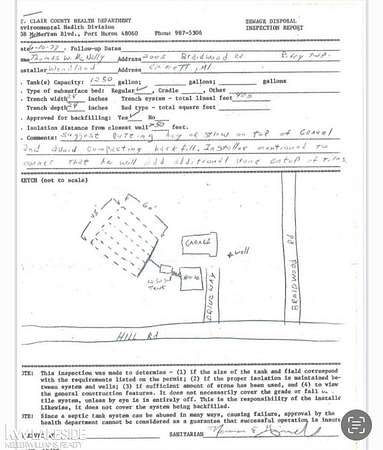 T. CLAIR COUNTY HEALTH DEPARTMENT SEWAGE DISPOSAL
vironmental Health Division INSPECTION REPORT
38 McMorran Blvd., Port Huron 48060 Phone 987-5306
Follow-up Dates
Thomas W. McNally Address 2005 Braidwood Rd Riley Twp.
staller Woodland Address Emmett, MI
Tank(s) Capacity: 1250 gallon; gallons; gallons
Type of subsurface bed: Regular, Cradle, Other
Trench width inches Trench system - total lineal feet
Trench depth inches Bed type - total square feet
Approved for backfilling: Yes No
Isolation distance from closest well feet.
Comments: Suggest putting hay or straw on top of gravel
and avoid compacting backfill. Installer mentioned to
owner that he will add additional stone ontop of tiles
KETCH (not to scale)
60'
GARAGE
well
TANK
DRIVEWAY
BRAIDWOOD Rd
HILL Rd
OTE: This inspection was made to determine - (1) if the size of the tank and field correspond
with the requirements listed on the permit; (2) if the proper isolation is maintained be-
tween system and wells; (3) if sufficient amount of stone has been used, and (4) to view
the general construction features. It does not necessarily cover the grade or fall
tile system, unless by eye is entirely off. This is the responsibility of the installe
Likewise, it does not cover the system being backfilled.
OTE: Since a septic tank system can be abused in many ways, causing failure, approval by the
health department cannot be considered as a guarantee that successful operation is insure
SANITARIAN